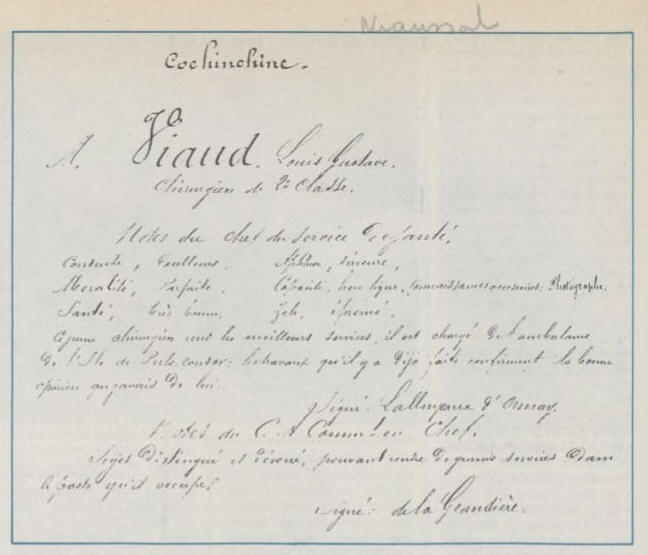 Cochinchine.
Viaud. Louis Gustave.
Chirurgien de 2e Classe.
Notes du Chef du Service de santé.
Conduite, Excellente. sérieuse,
Moralité, Parfaite. Capacité, hors ligne, connaissances accessoires: Photographe.
Santé, très bonne. Zèle, éprouvé.
Ce jeune chirurgien rend les meilleurs services, il est chargé de l'ambulance
de l'Ile de Poulo-condor: les travaux qu'il y a déjà faits confirment la bonne
opinion que j'avais de lui.
Signé: Lalluyeaux d'Ormay.
Notes du C. A Commt en Chef.
Sujet distingué et dévoué, pouvant rendre de grands services dans
le poste qu'il occupe.
Signé: de la Grandière.